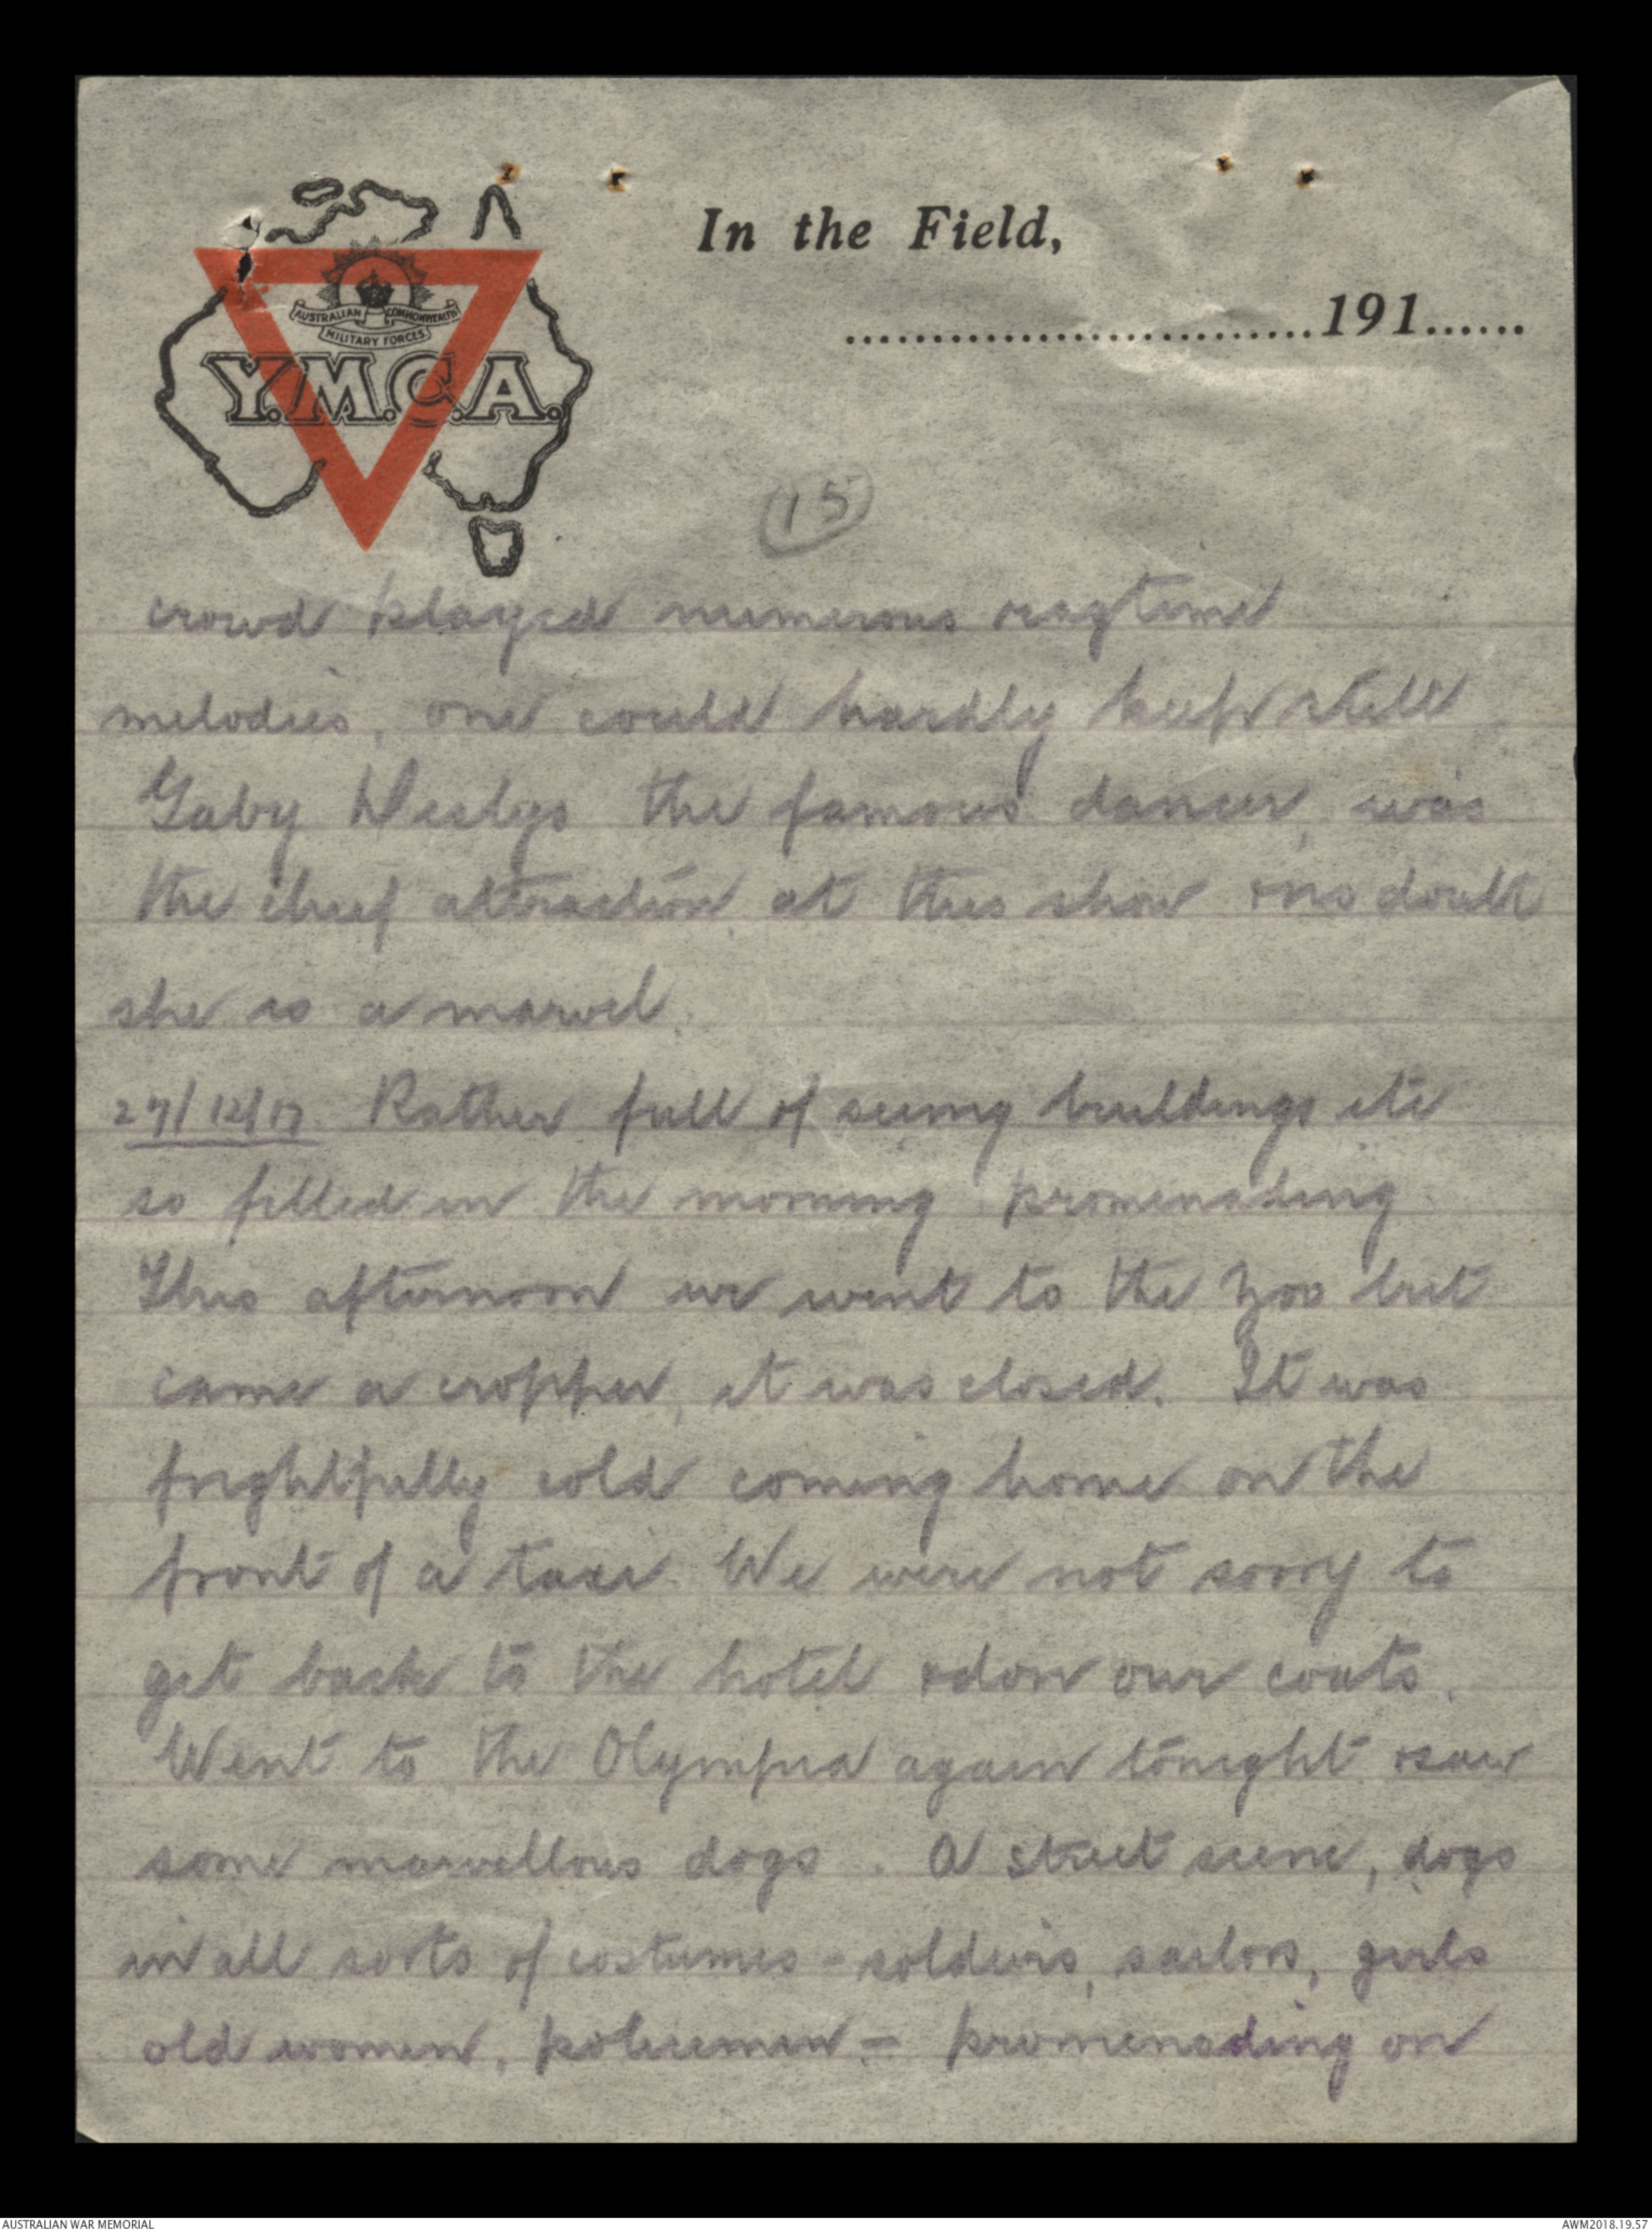 In the Field,
...........................191......
AUSTRALIAN COMMONWEALTH
MILITARY FORCES
Y.M.C.A.
15
crowd played numerous ragtime
melodies, one could hardly keep still.
Gaby Deslys the famous dancer, was
the chief attraction at this show & no doubt
she is a marvel.
27/12/17. Rather full of seeing buildings etc
so filled in the morning promenading.
This afternoon we went to the Zoo but
came a cropper, it was closed. It was
frightfully cold coming home on the
front of a taxi. We were not sorry to
get back to the hotel & don our coats.
Went to the Olympia again tonight & saw
some marvellous dogs. A street scene, dogs
in all sorts of costumes - soldiers, sailors, girls
old women, policemen - promenading on
AUSTRALIAN WAR MEMORIAL
AWM2018.19.57